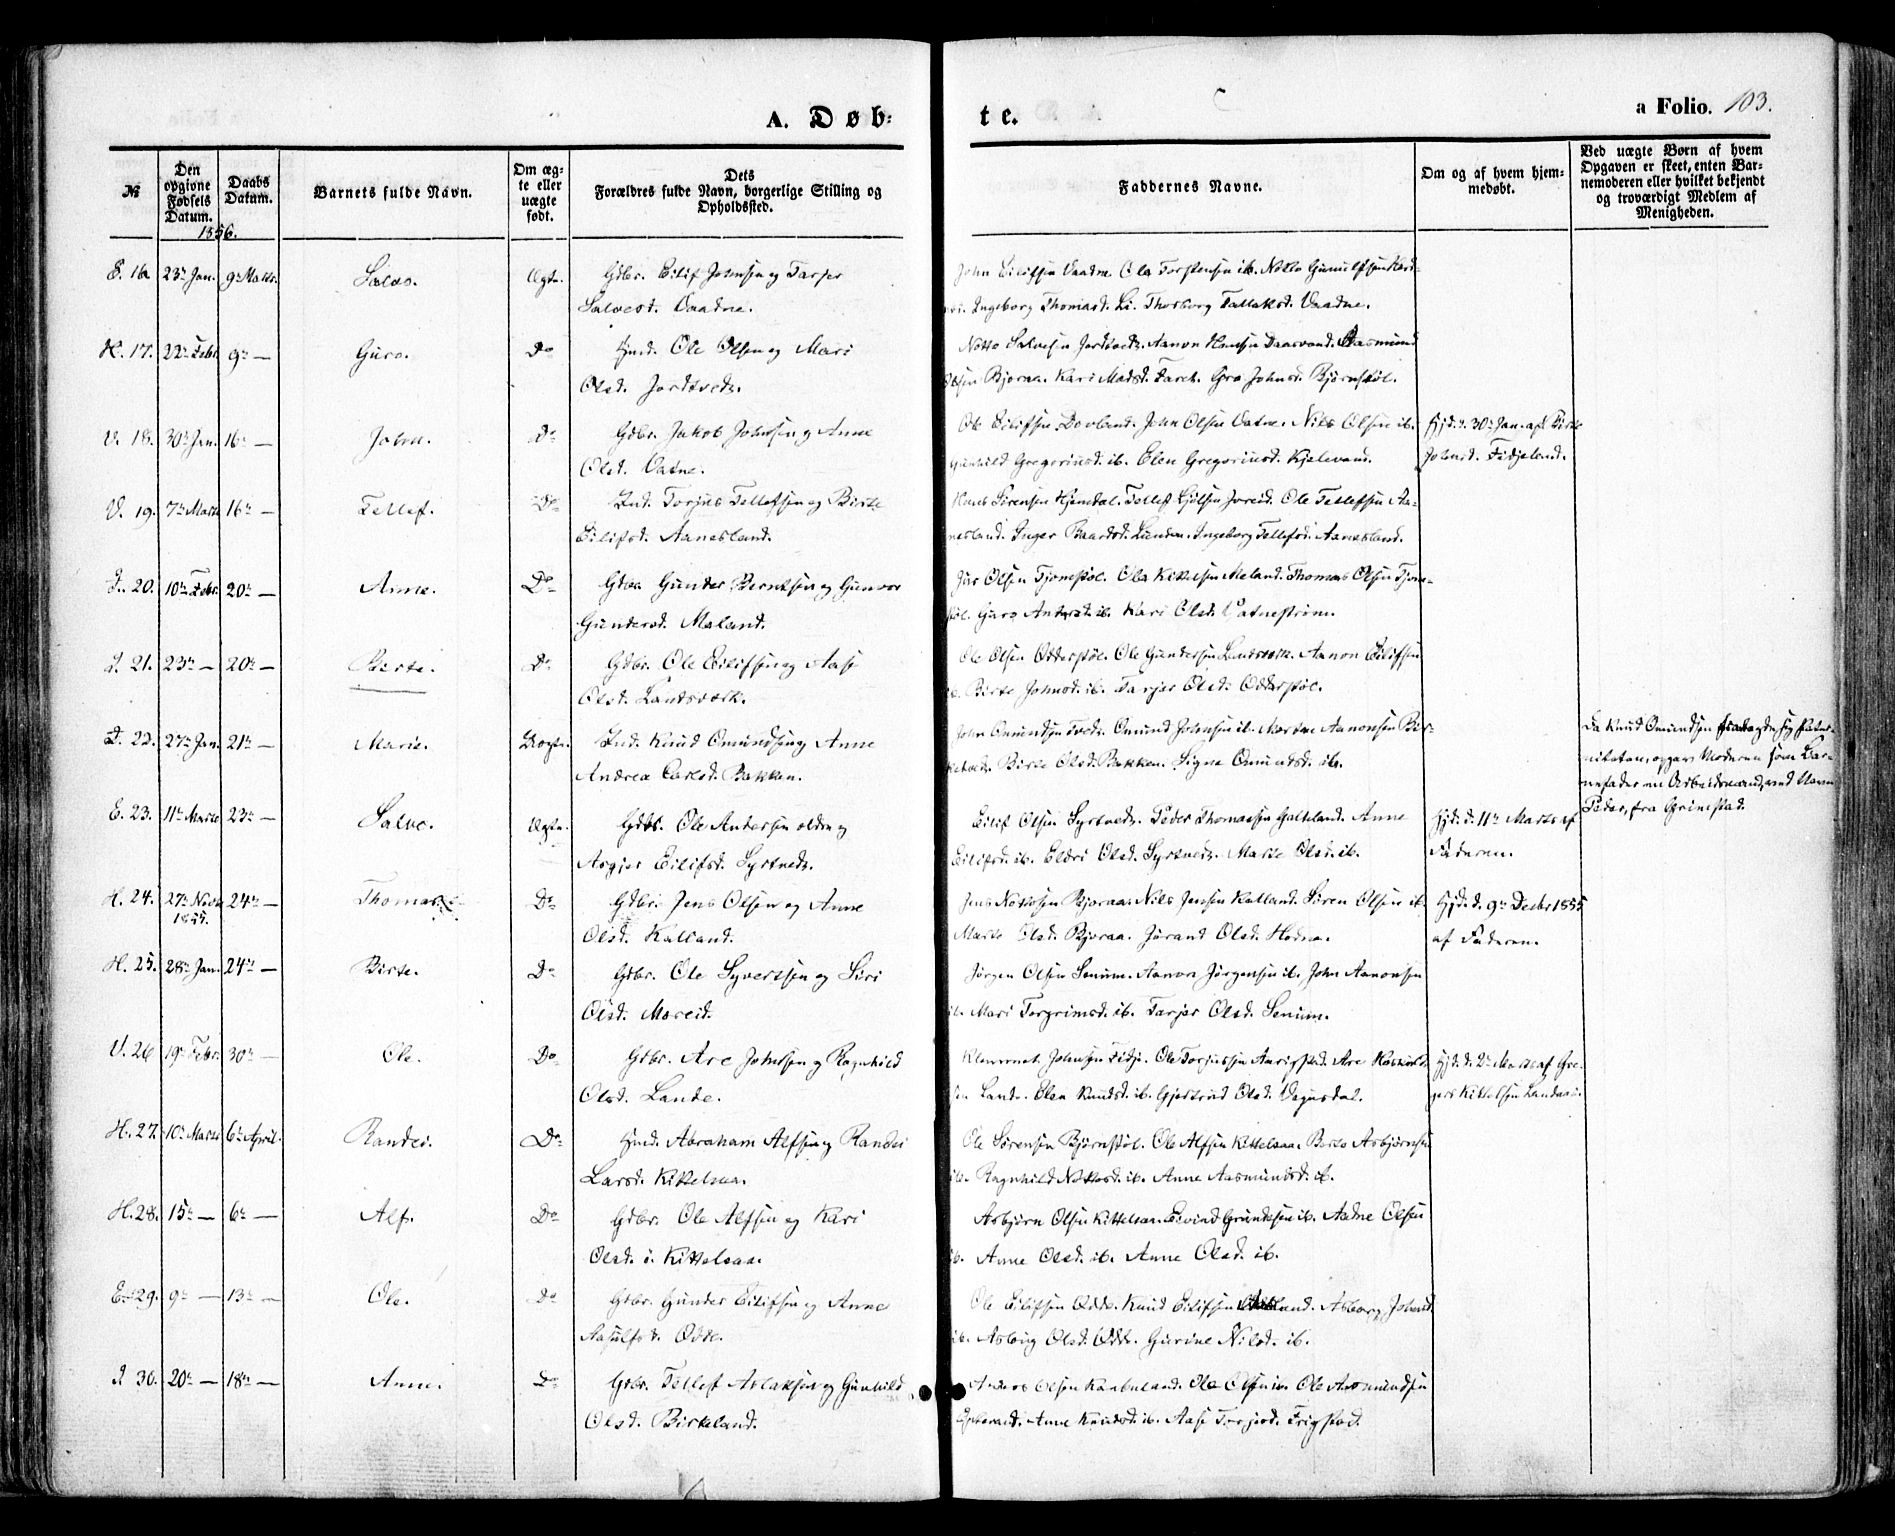 A. Døb-
te.
a Folio. 103.
№
Den opgivne Fødsels Datum.
Daabs Datum.
Barnets fulde Navn.
Om ægte eller uægte født.
Dets Forældres fulde Navn, borgerlige Stilling og Opholdssted.
Faddernes Navne.
Om og af hvem hjemmedøbt.
Ved uægte Børn af hvem Opgaven er skeet, enten Barnemoderen eller hvilket bekjendt og troværdigt Medlem af Menigheden.
1856.
E. 16 23de Jan. 9de Marts. Salve. Ægte. Gdbr. Eilif Johnsen og Tarjer
Salvesd. Vaadne.
John Eilifsen Vaadne Ole Torstensen ib. Notto Gunulfsen
Ingeborg Thomasd. Li. Thorborg Tallaksd. Vaadne.
H. 17. 22de Febr. 9de — Guro. Do Ind. Ole Olsen og Mari
Olsd. Jordtveds.
Notto Salvesen Jordtveds. Aanon Hansen Daasvand. Aasmund
Olsen Bjoraa. Kari Madsd. Gro Johnsd. Bjørnstøl.
V. 18. 30te Jan. 16de — John. Do Gdbr. Jakob Johnsen og Anne
Olsd. Vatne.
Ole Eilifsen Dovland. John Olsen Vatne. Nils Olsen ib.
Gunhild Gregoriusd. ib. Elen Gregoriusd. Kjelevand.
Hjd. d. 30te Jan. af Birte
Johnsd. Fidjeland.
V. 19. 7de Marts 16de — Tellef. Do Ind. Torjus Tellefsen og Birte
Eilifsd. Aanesland.
Knud Sörensen Hjemdal. Tellef Ole Tellefsen Aa-
nesland. Inger Baardsd. Lunden. Ingeborg Tellefsd. Aanesland.
I. 20. 10de Febr. 20de — Anne. Do Gdbr. Gunder Berntsen og Gunvor
Gundersd. Meland.
Olsen Tjomstöl. Ole Kittelsen Meland. Thomas Olsen Tjom-
stöl. Guro Andersd. ib. Kari Olsd. Vatnestrøm.
I. 21. 23de — 20de — Birte. Do Gdbr. Ole Eilifsen og Aase
Olsd. Landsverk.
Ole Olsen Odderstöl. Ole Gundersen Landsverk. Aanon Eilifsen
ib. Birte Johnsd. ib. Tarjer Olsd. Odderstöl.
I. 22. 27de Jan. 21de — Marie. Uægte. Ind. Knud Omundsen og Anne
Andrea Carlsd. Bakken.
John Omundsen Tveds. Omund Johnsen ib. Morten Aanonsen Bir-
ketveds. Birte Olsd. Bakken. Signe Omundsd. ib.
Da Knud Omundsen fralagde sig Pater-
niteten, opgav Moderen som Bar-
nefader en Arbeidsmand, ved Navn
Peder, fra Grimstad.
E. 23. 11te Marts 23de — Salve. Ægte. Gdbr. Ole Andersen ældre og
Asgjer Eilifsd. Syrtveds.
Eilif Olsen Syrtveds. Peder Thomassen Galteland. Anne
Eilifsd. ib. Eldri Olsd. Syrtveds. Marte Olsd. ib.
Hjd. d. 11te Marts af
Faderen.
H. 24. 27de Novbr 1855. 24de — Thomas. Do Gdbr. Jens Olsen og Anne
Olsd. Kalland.
Jens Nottosen Bjoraa. Nils Jensen Kalland. Sören Olsen ib.
Marte Olsd. Bjoraa. Jörand Olsd. Hodne.
Hjd. d. 9de Decbr 1855
af Faderen.
H. 25. 28de Jan. 24de — Birte. Do Gdbr. Ole Syvertsen og Siri
Olsd. Moreid.
Jörgen Olsen Senum. Aanon Jörgensen ib. John Aanonsen
ib. Mari Torgrimsd. ib. Tarjer Olsd. Senum.
V. 26. 19de Febr. 30te — Ole. Do Gdbr. Are Johnsen og Ragnhild
Olsd. Lande.
Klemmet Johnsen Fidje. Ole Torjussen Are
Lande. Elen Knudsd. ib. Gjertrud Olsd. Vegusdal.
Hjd. d. 2de Marts af Gre-
gers Kittelsen Lande.
H. 27. 10de Marts 6te April. Randei. Do Ind. Abraham Alfsen og Randei
Larsd. Kittelsaa.
Ole Sörensen Bjørnstöl. Ole Alfsen Kittelsaa. Berte Asbjørnsen
ib. Ragnhild Nottosd. ib. Anne Aasmundsd. ib.
H. 28. 15de — 6te — Alf. Do Gdbr. Ole Alfsen og Kari
Olsd. i Kittelsaa.
Asbjørn Olsen Kittelsaa. Eivind Gundersen ib. Aadne Olsen
ib. Anne Olsd. ib. Anne Olsd. ib.
E. 29. 9de — 13de — Ole. Do Gdbr. Gunder Eilifsen og Anne
Aasulfsd. Odde.
Ole Eilifsen Odde. Knud Eilifsen Asborg Johnsd.
ib. Asborg Olsd. Odde. Gurine Nilsd. ib.
I. 30. 20de — 18de — Anne. Do Gdbr. Tellef Aslaksen og Gunhild
Olsd. Birkeland.
Anders Olsen Ole Olsen ib. Ole Aasmundsen
Anne Knudsd. ib. Aase Torjusd. Frigstad.